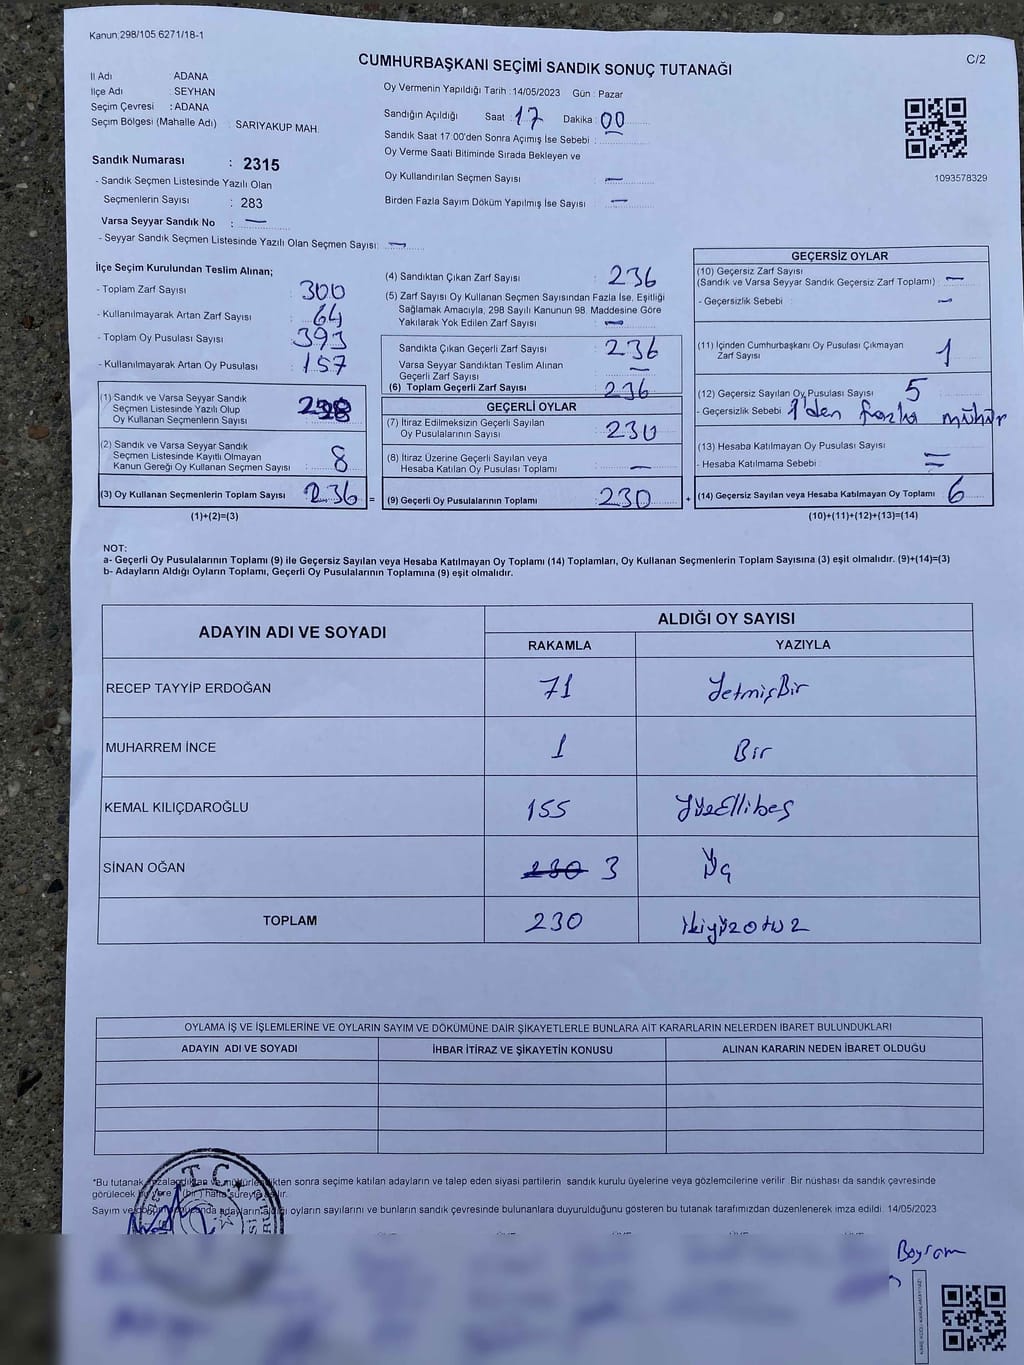 Kanun:298/105 6271/18-1
C/2
CUMHURBAŞKANI SEÇİMİ SANDIK SONUÇ TUTANAĞI
İl Adı : ADANA
İlçe Adı : SEYHAN
Seçim Çevresi : ADANA
Seçim Bölgesi (Mahalle Adı) : SARIYAKUP MAH.
Sandık Numarası : 2315
- Sandık Seçmen Listesinde Yazılı Olan
Seçmenlerin Sayısı : 283
Varsa Seyyar Sandık No : —
- Seyyar Sandık Seçmen Listesinde Yazılı Olan Seçmen Sayısı: —
Oy Vermenin Yapıldığı Tarih : 14/05/2023 Gün : Pazar
Sandığın Açıldığı Saat : 17 Dakika : 00
Sandık Saat 17:00'den Sonra Açımış İse Sebebi :
Oy Verme Saati Bitiminde Sırada Bekleyen ve
Oy Kullandırılan Seçmen Sayısı : —
Birden Fazla Sayım Döküm Yapılmış İse Sayısı : —
1093578329
İlçe Seçim Kurulundan Teslim Alınan;
- Toplam Zarf Sayısı : 300
- Kullanılmayarak Artan Zarf Sayısı : 64
- Toplam Oy Pusulası Sayısı : 393
- Kullanılmayarak Artan Oy Pusulası : 157
(1) Sandık ve Varsa Seyyar Sandık
Seçmen Listesinde Yazılı Olup
Oy Kullanan Seçmenlerin Sayısı :
(2) Sandık ve Varsa Seyyar Sandık
Seçmen Listesinde Kayıtlı Olmayan
Kanun Gereği Oy Kullanan Seçmen Sayısı : 8
(3) Oy Kullanan Seçmenlerin Toplam Sayısı : 236 =
(1)+(2)=(3)
(4) Sandıktan Çıkan Zarf Sayısı : 236
(5) Zarf Sayısı Oy Kullanan Seçmen Sayısından Fazla İse, Eşitliği
Sağlamak Amacıyla, 298 Sayılı Kanunun 98. Maddesine Göre
Yakılarak Yok Edilen Zarf Sayısı : —
Sandıkta Çıkan Geçerli Zarf Sayısı : 236
Varsa Seyyar Sandıktan Teslim Alınan
Geçerli Zarf Sayısı : —
(6) Toplam Geçerli Zarf Sayısı : 236
GEÇERLİ OYLAR
(7) İtiraz Edilmeksizin Geçerli Sayılan
Oy Pusulalarının Sayısı : 230
(8) İtiraz Üzerine Geçerli Sayılan veya
Hesaba Katılan Oy Pusulası Toplamı : —
(9) Geçerli Oy Pusulalarının Toplamı : 230 +
GEÇERSİZ OYLAR
(10) Geçersiz Zarf Sayısı
(Sandık ve Varsa Seyyar Sandık Geçersiz Zarf Toplamı) : —
- Geçersizlik Sebebi : —
(11) İçinden Cumhurbaşkanı Oy Pusulası Çıkmayan
Zarf Sayısı : 1
(12) Geçersiz Sayılan Oy Pusulası Sayısı : 5
- Geçersizlik Sebebi : 1'den fazla mühür
(13) Hesaba Katılmayan Oy Pusulası Sayısı : —
- Hesaba Katılmama Sebebi : —
(14) Geçersiz Sayılan veya Hesaba Katılmayan Oy Toplamı : 6
(10)+(11)+(12)+(13)=(14)
NOT:
a- Geçerli Oy Pusulalarının Toplamı (9) ile Geçersiz Sayılan veya Hesaba Katılmayan Oy Toplamı (14) Toplamları, Oy Kullanan Seçmenlerin Toplam Sayısına (3) eşit olmalıdır. (9)+(14)=(3)
b- Adayların Aldığı Oyların Toplamı, Geçerli Oy Pusulalarının Toplamına (9) eşit olmalıdır.
ADAYIN ADI VE SOYADI
ALDIĞI OY SAYISI
RAKAMLA YAZIYLA
RECEP TAYYİP ERDOĞAN 71 YetmişBir
MUHARREM İNCE 1 Bir
KEMAL KILIÇDAROĞLU 155 YüzEllibeş
SİNAN OĞAN 230 3 Üç
TOPLAM 230 ikiyüzotuz
OYLAMA İŞ VE İŞLEMLERİNE VE OYLARIN SAYIM VE DÖKÜMÜNE DAİR ŞİKAYETLERLE BUNLARA AİT KARARLARIN NELERDEN İBARET BULUNDUKLARI
ADAYIN ADI VE SOYADI İHBAR İTİRAZ VE ŞİKAYETİN KONUSU ALINAN KARARIN NEDEN İBARET OLDUĞU
T.C.
*Bu tutanak sonra seçime katılan adayların ve talep eden siyasi partilerin sandık kurulu üyelerine veya gözlemcilerine verilir. Bir nüshası da sandık çevresinde
görülecek bir yere (bir) hafta süreyle asılır.
Sayım ve oyların sayılarını ve bunların sandık çevresinde bulunanlara duyurulduğunu gösteren bu tutanak tarafımızdan düzenlenerek imza edildi. 14/05/2023
Bayram